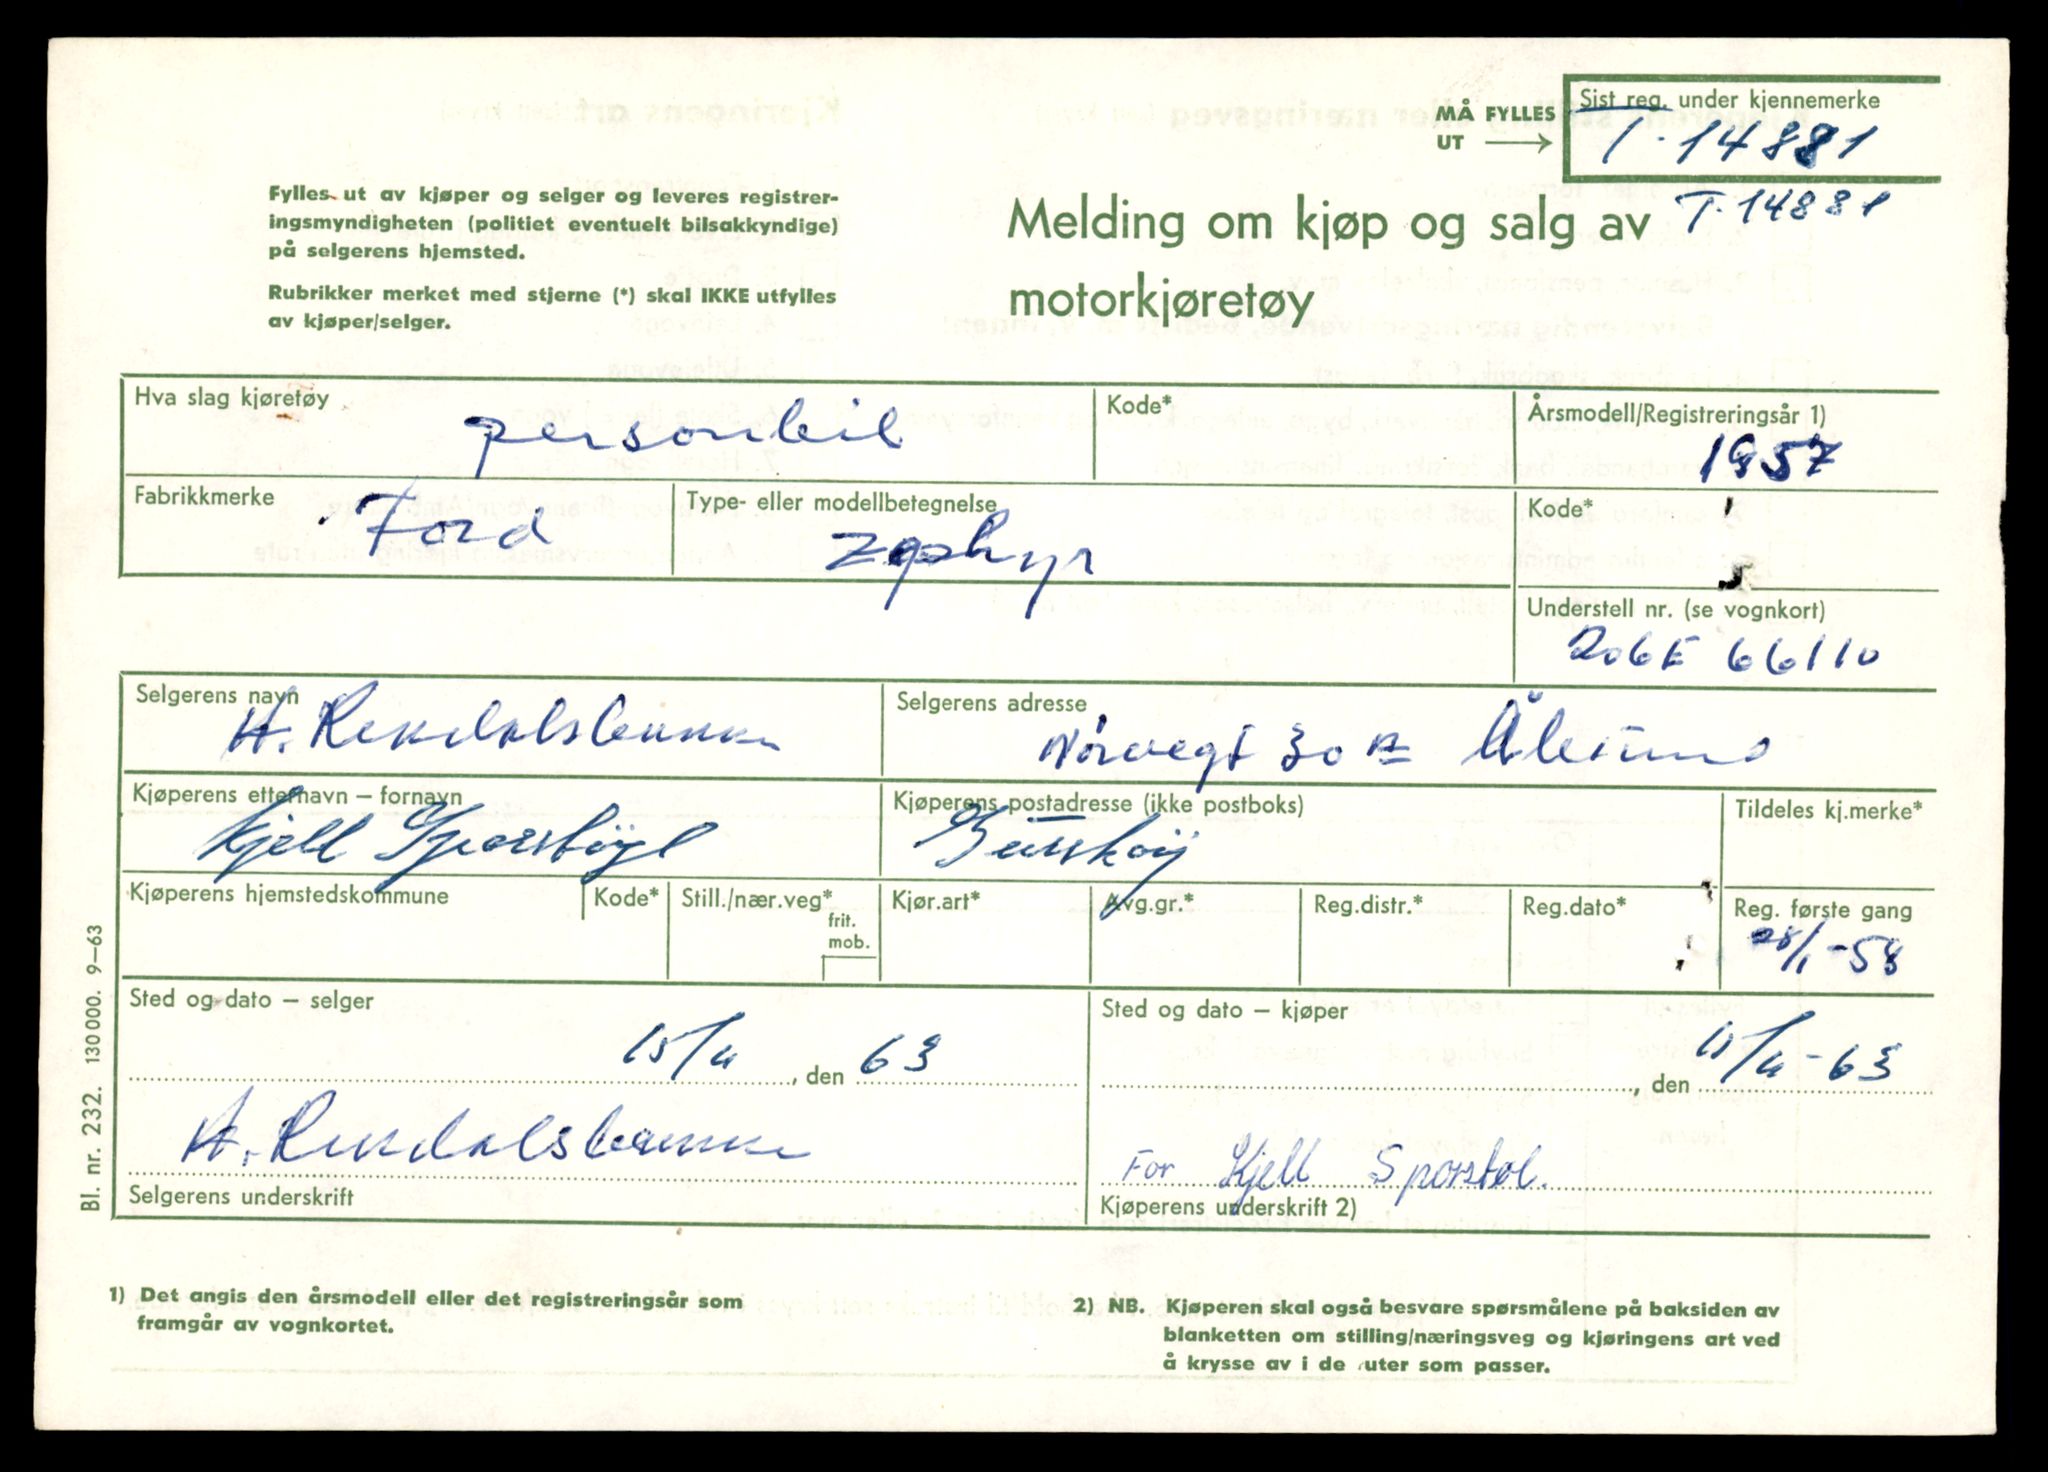 MÅ FYLLES
UT
Sist reg. under kjennemerke
T-14881
T-14881
Fylles ut av kjøper og selger og leveres registrer-
ingsmyndigheten (politiet eventuelt bilsakkyndige)
på selgerens hjemsted.
Rubrikker merket med stjerne (*) skal IKKE utfylles
av kjøper/selger.
Melding om kjøp og salg av
motorkjøretøy
Hva slag kjøretøy
personbil
Kode*
Årsmodell/Registreringsår 1)
1957
Fabrikkmerke
Ford
Type- eller modellbetegnelse
Zephyr
Kode*
Understell nr. (se vognkort)
206E 66110
Selgerens navn
A. Rekdalsbakken
Selgerens adresse
30 Ålesund
Kjøperens etternavn – fornavn
Kjell Sporstøyl
Kjøperens postadresse (ikke postboks)
Tildeles kj.merke*
Kjøperens hjemstedskommune
Kode*
Still./nær.veg*
frit.
mob.
Kjør.art*
Avg.gr.*
Reg.distr.*
Reg.dato*
Reg. første gang
28/1-58
Sted og dato – selger
15/11, den 63
Sted og dato – kjøper
, den 15/11-63
A. Rekdalsbakken
Selgerens underskrift
For Kjell Sporstøl.
Kjøperens underskrift 2)
Bl. nr. 232. 130 000. 9–63
1) Det angis den årsmodell eller det registreringsår som
framgår av vognkortet.
2) NB. Kjøperen skal også besvare spørsmålene på baksiden av
blanketten om stilling/næringsveg og kjøringens art ved
å krysse av i de ruter som passer.